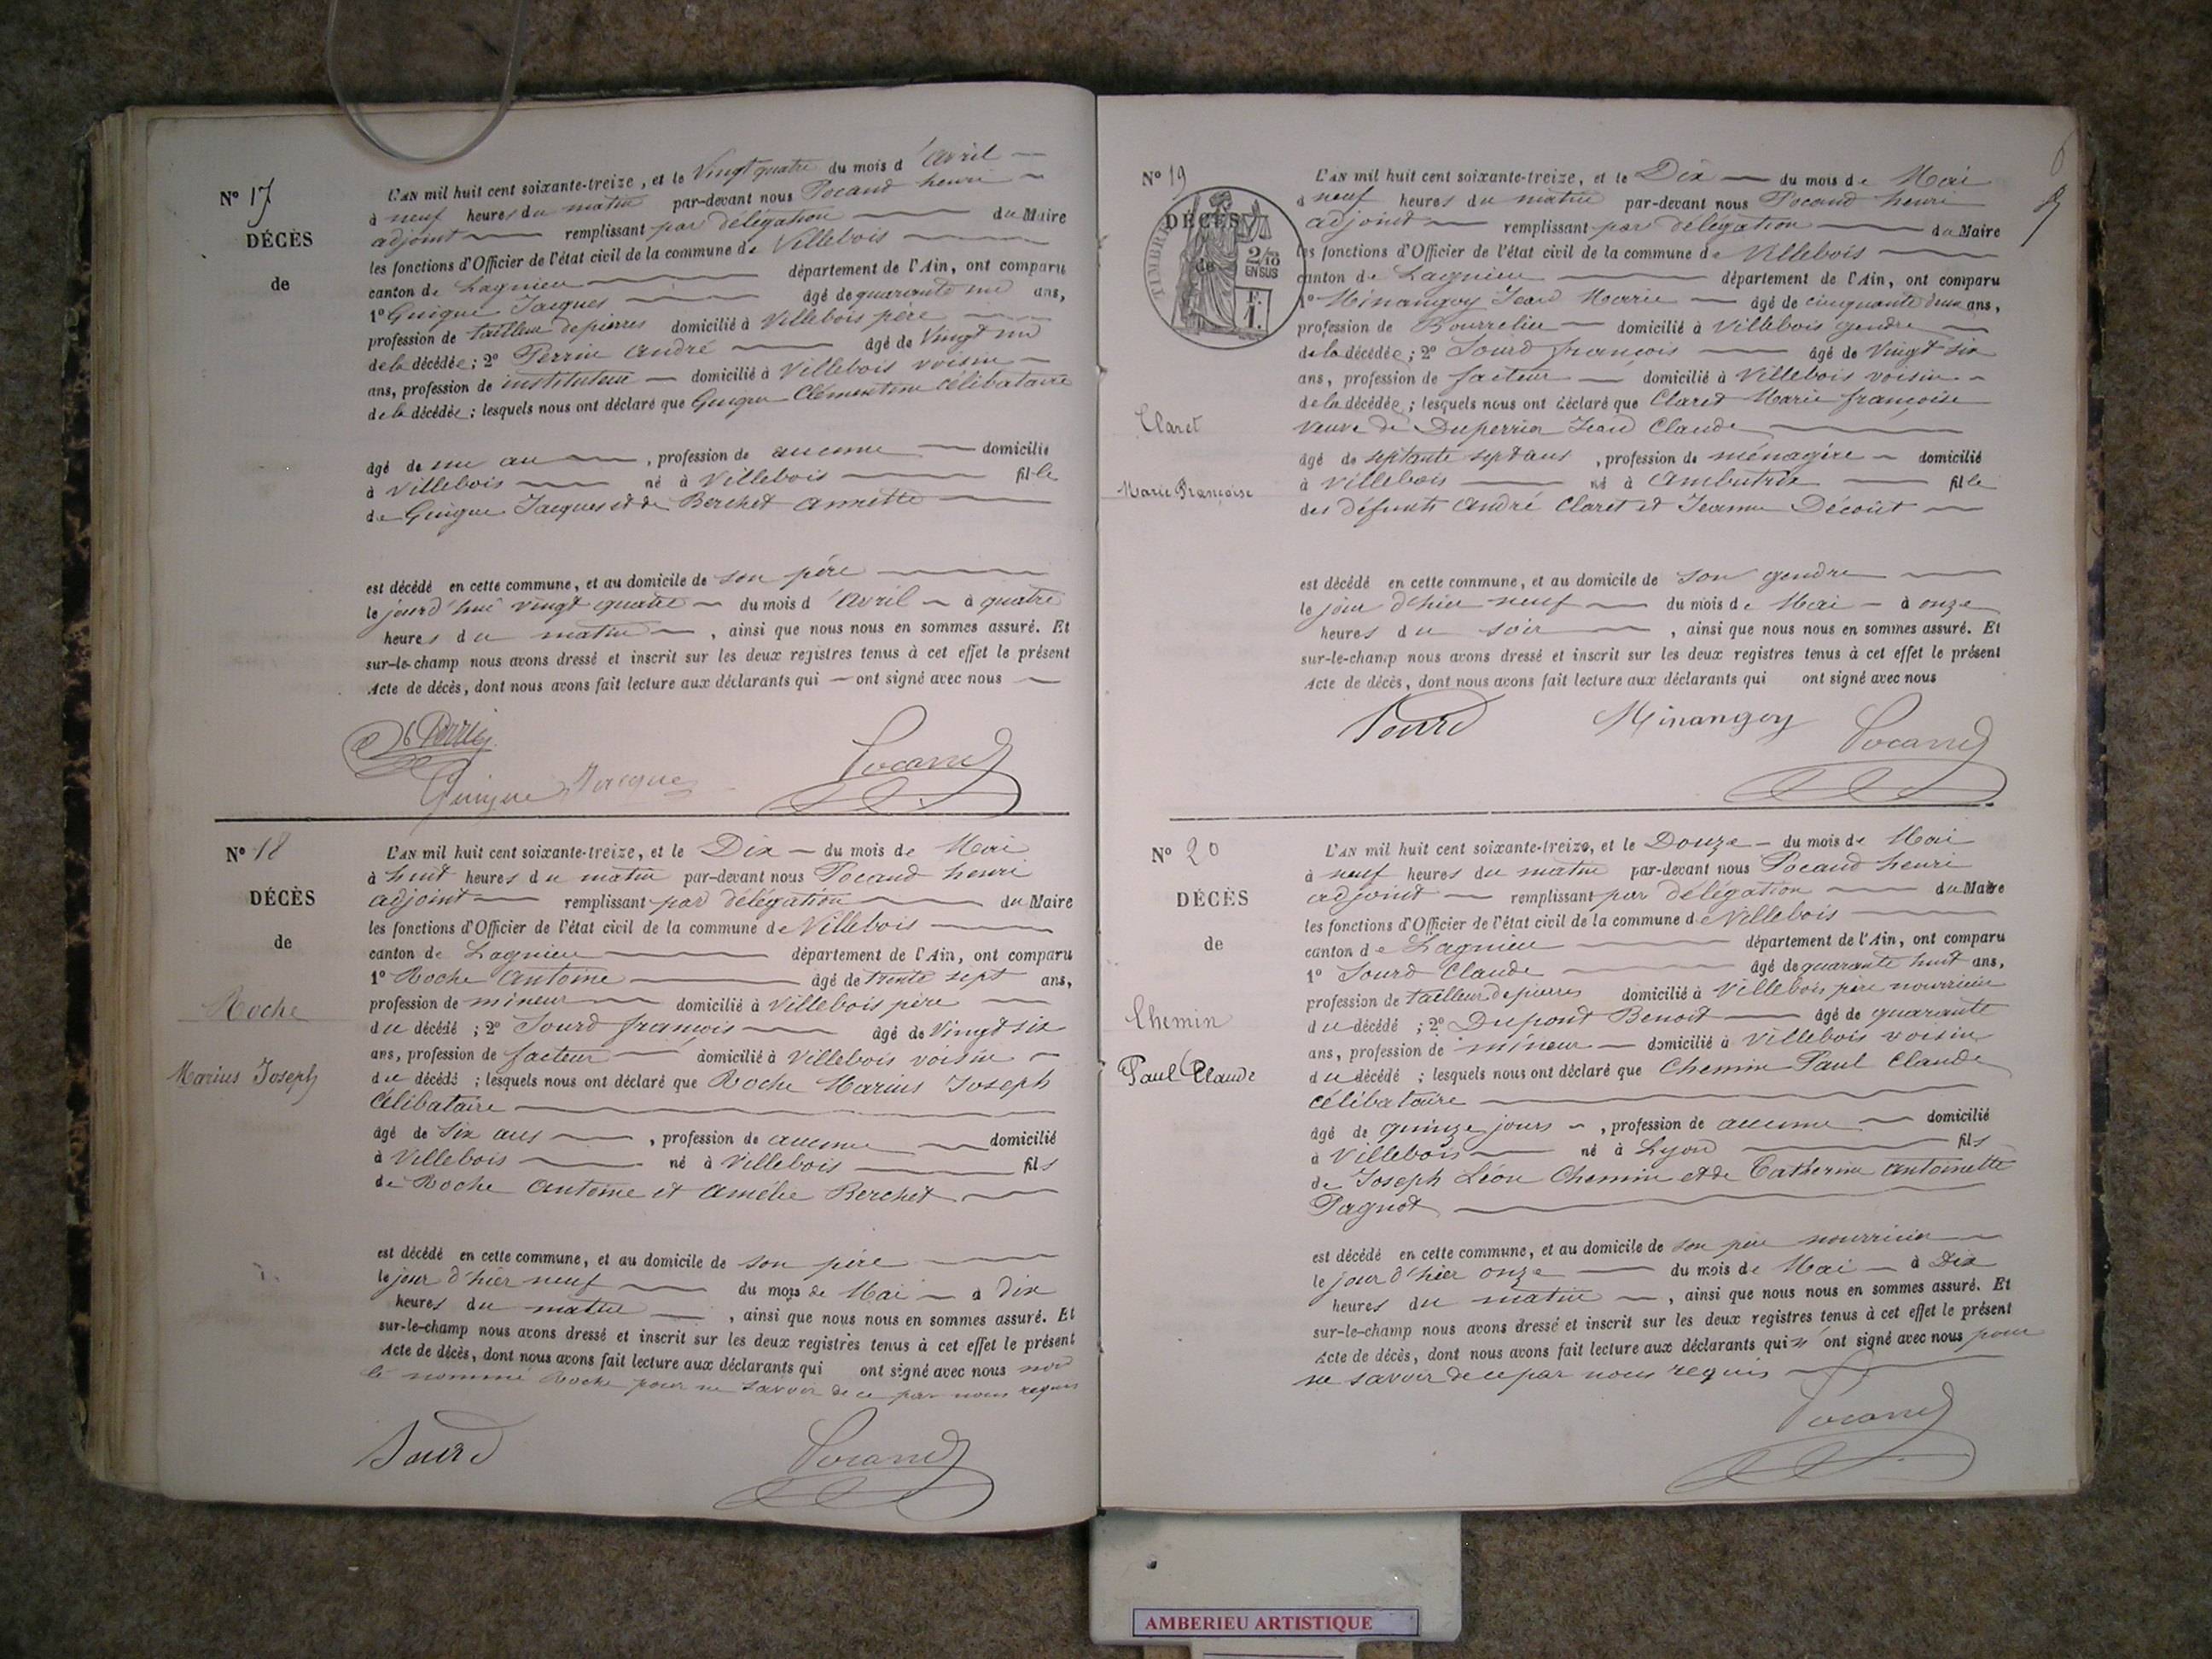 Nº 17
DÉCÈS
de
L'AN mil huit cent soixante-treize, et le Vingt quatre du mois d'Avril
à neuf heures du matin par-devant nous Pocand henri
adjoint remplissant par délégation du Maire
les fonctions d'Officier de l'état civil de la commune de Villebois
canton de Lagnieu département de l'Ain, ont comparu
1º Guigue Jacques âgé de quarante un ans,
profession de tailleur de pierres domicilié à Villebois père
de la décédée; 2º Perrin André âgé de Vingt un
ans, profession de instituteur domicilié à Villebois voisin
de la décédée; lesquels nous ont déclaré que Guigue Clémentine Célibataire
âgé de un an, profession de aucune domicilié
à Villebois né à Villebois fille
de Guigue Jacques et de Berchet Annette
est décédé en cette commune, et au domicile de son père
le jourd'hui vingt quatre du mois d'Avril à quatre
heures du matin, ainsi que nous nous en sommes assuré. Et
sur-le-champ nous avons dressé et inscrit sur les deux registres tenus à cet effet le présent
Acte de décès, dont nous avons fait lecture aux déclarants qui ont signé avec nous
Perrin
Guigue Jacque
Pocand
Nº 18
DÉCÈS
de
Roche
Marius Joseph
L'AN mil huit cent soixante-treize, et le Dix du mois de Mai
à huit heures du matin par-devant nous Pocand henri
adjoint remplissant par délégation du Maire
les fonctions d'Officier de l'état civil de la commune de Villebois
canton de Lagnieu département de l'Ain, ont comparu
1º Roche Antoine âgé de trente sept ans,
profession de mineur domicilié à Villebois père
du décédé; 2º Sourd françois âgé de Vingt six
ans, profession de facteur domicilié à Villebois voisin
du décédé; lesquels nous ont déclaré que Roche Marius Joseph
Célibataire
âgé de Six ans, profession de aucune domicilié
à Villebois né à Villebois fils
de Roche Antoine et Amélie Berchet
est décédé en cette commune, et au domicile de son père
le jour d'hier neuf du mois de Mai à Dix
heures du matin, ainsi que nous nous en sommes assuré. Et
sur-le-champ nous avons dressé et inscrit sur les deux registres tenus à cet effet le présent
Acte de décès, dont nous avons fait lecture aux déclarants qui ont signé avec nous non
le nommé Roche pour ne savoir de ce par nous requis
Sourd
Pocand
Nº 19
DÉCÈS
de
TIMBRE
2/10
EN SUS
F.
1.
Claret
Marie Françoise
L'AN mil huit cent soixante-treize, et le Dix du mois de Mai
à neuf heures du matin par-devant nous Pocand henri
adjoint remplissant par délégation du Maire
les fonctions d'Officier de l'état civil de la commune de Villebois
canton de Lagnieu département de l'Ain, ont comparu
1º Minangoy Jean Marie âgé de cinquante deux ans,
profession de Bourrelier domicilié à Villebois gendre
de la décédée; 2º Sourd françois âgé de Vingt six
ans, profession de facteur domicilié à Villebois voisin
de la décédée; lesquels nous ont déclaré que Claret Marie françoise
veuve de Duperrier Jean Claude
âgé de septante sept ans, profession de ménagère domicilié
à Villebois né à Ambutrix fille
des défunts André Claret et Jeanne Décoût
est décédé en cette commune, et au domicile de son gendre
le jour d'hier neuf du mois de Mai à onze
heures du soir, ainsi que nous nous en sommes assuré. Et
sur-le-champ nous avons dressé et inscrit sur les deux registres tenus à cet effet le présent
Acte de décès, dont nous avons fait lecture aux déclarants qui ont signé avec nous
Sourd
Minangoy
Pocand
Nº 20
DÉCÈS
de
Chemin
Paul Claude
L'AN mil huit cent soixante-treize, et le Douze du mois de Mai
à neuf heures du matin par-devant nous Pocand henri
adjoint remplissant par délégation du Maire
les fonctions d'Officier de l'état civil de la commune de Villebois
canton de Lagnieu département de l'Ain, ont comparu
1º Sourd Claude âgé de quarante huit ans,
profession de tailleur de pierres domicilié à Villebois père nourricier
du décédé; 2º Dupont Benoit âgé de quarante
ans, profession de mineur domicilié à Villebois voisin
du décédé; lesquels nous ont déclaré que Chemin Paul Claude
célibataire
âgé de quinze jours, profession de aucune domicilié
à Villebois né à Lyon fils
de Joseph Léon Chemin et de Catherine Antoinette
Pagnot
est décédé en cette commune, et au domicile de son père nourricier
le jour d'hier onze du mois de Mai à Dix
heures du matin, ainsi que nous nous en sommes assuré. Et
sur-le-champ nous avons dressé et inscrit sur les deux registres tenus à cet effet le présent
Acte de décès, dont nous avons fait lecture aux déclarants qui n'ont signé avec nous pour
ne savoir de ce par nous requis
Pocand
AMBERIEU ARTISTIQUE